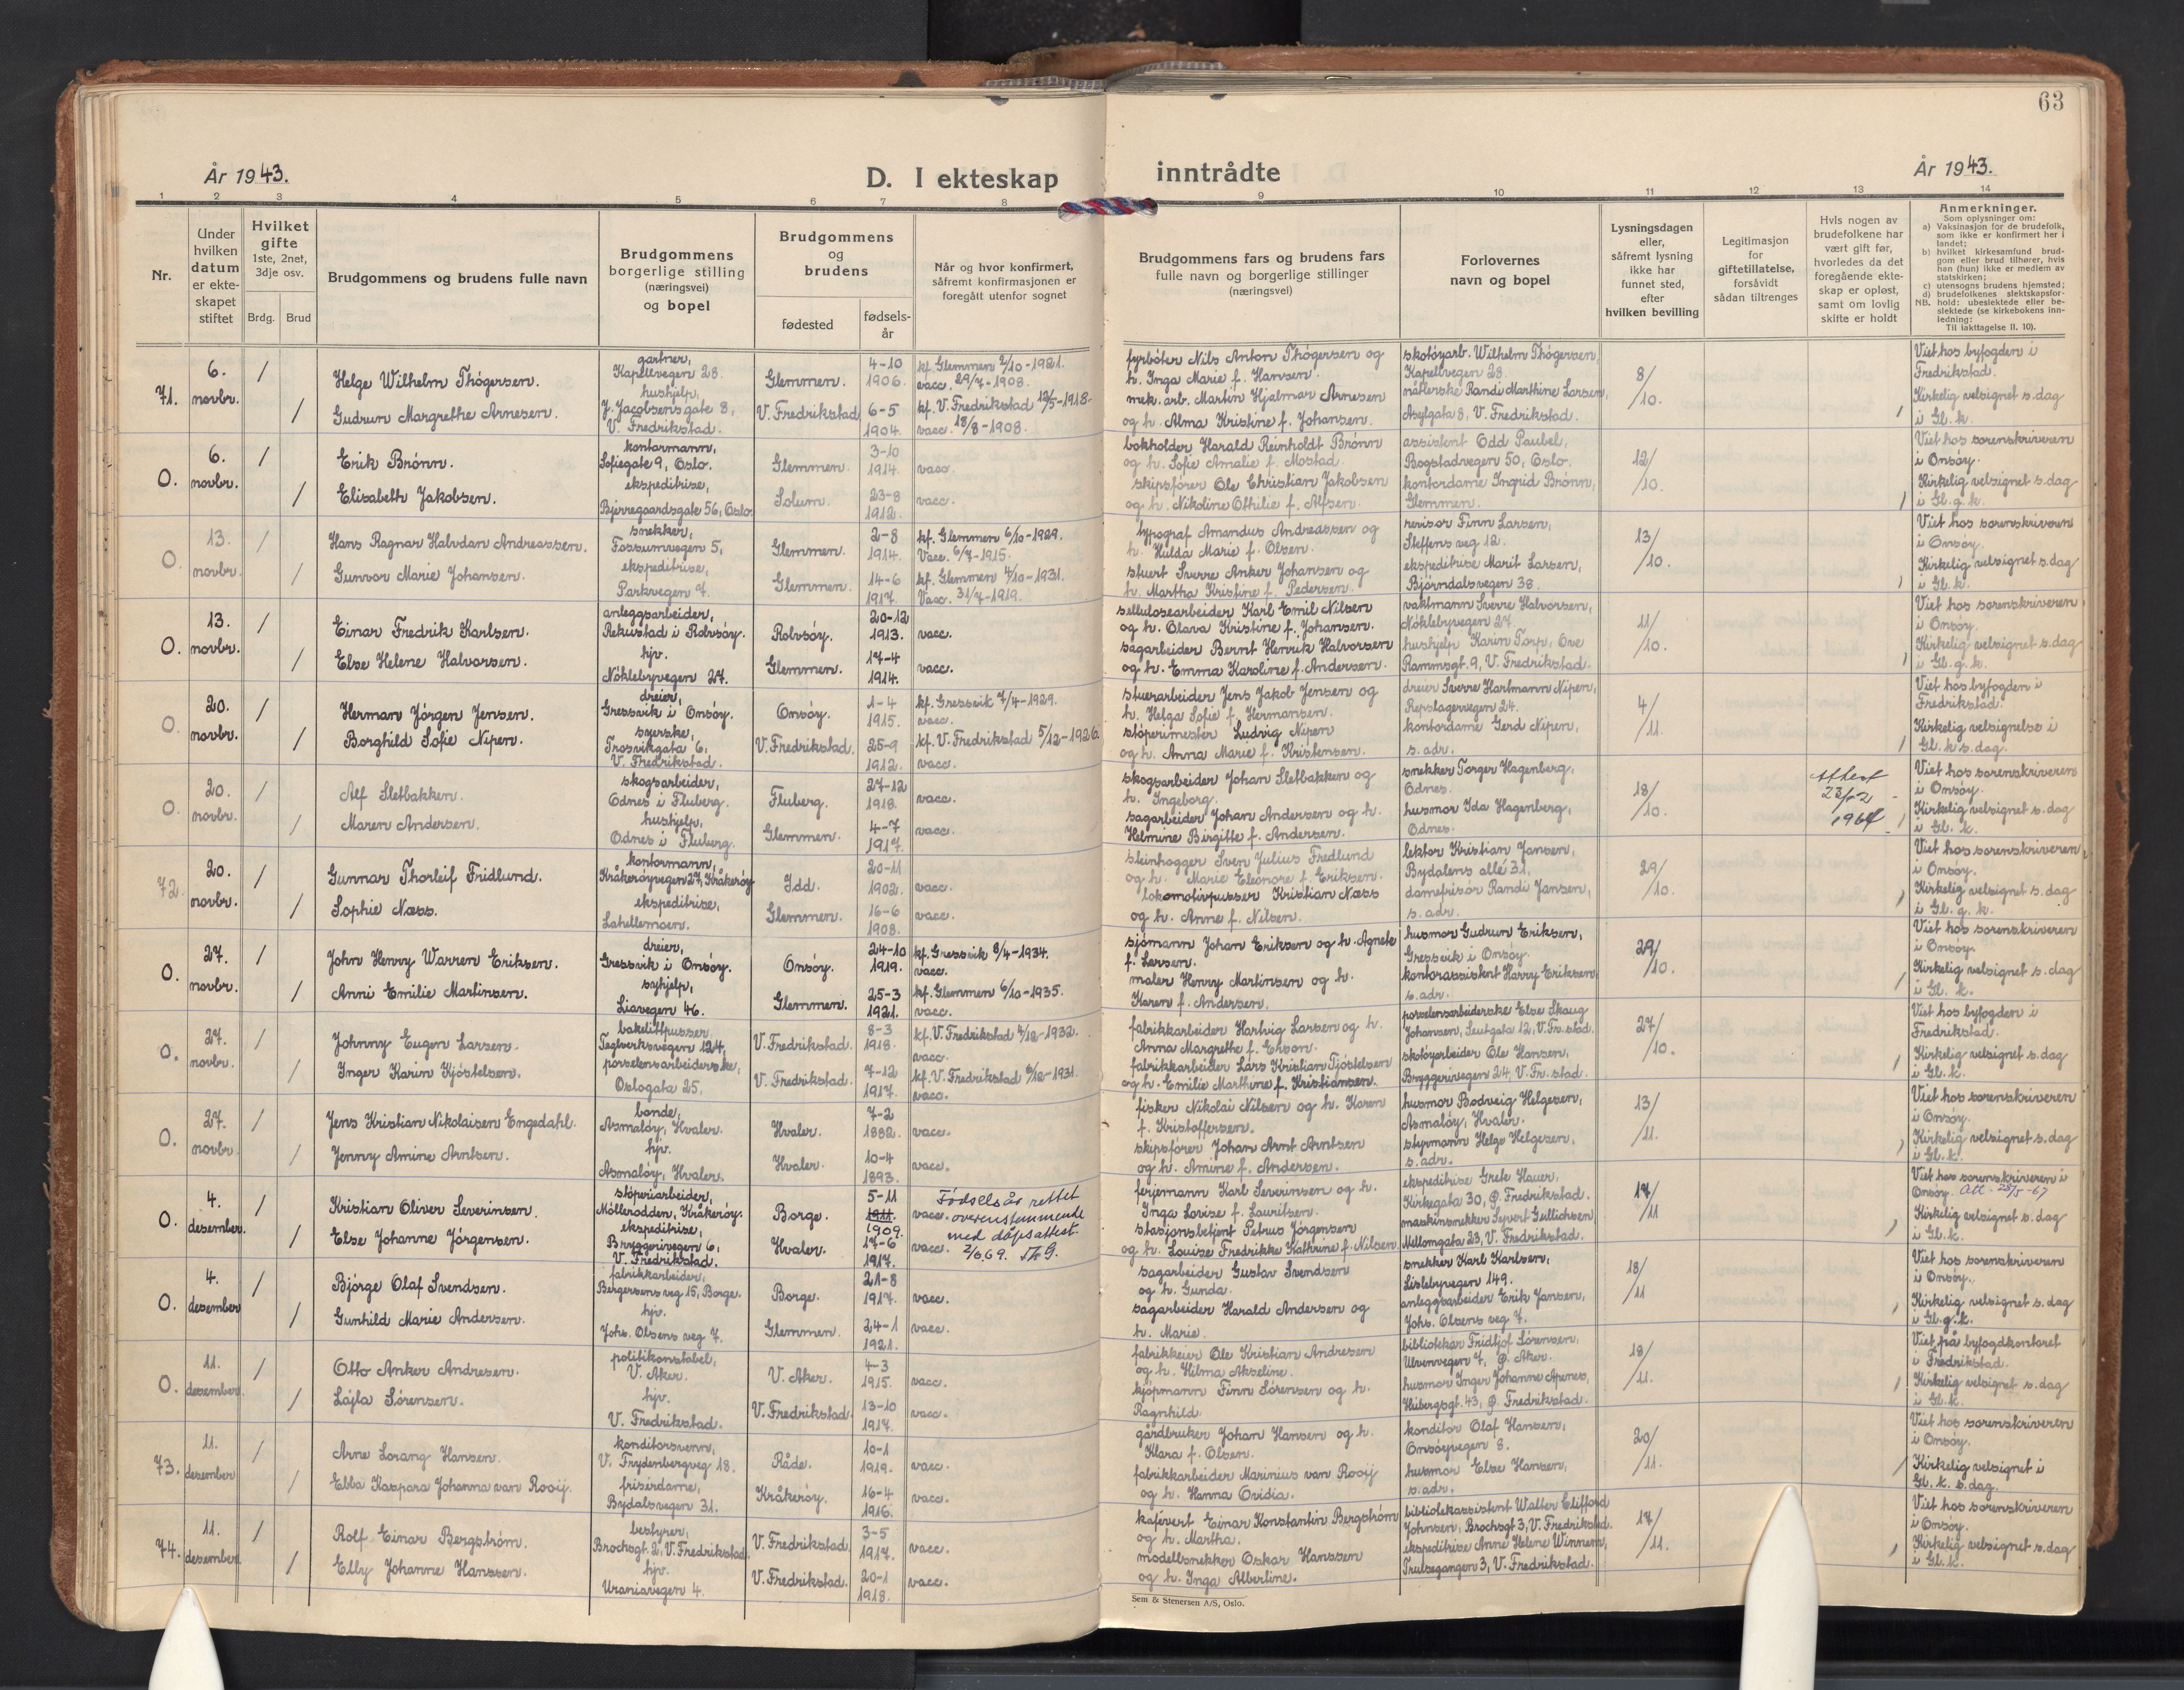 63
År 1943.
D. I ekteskap
inntrådte
År 1943.
1 2 3 4 5 6 7 8 9 10 11 12 13 14
Nr.
Under hvilken datum er ekteskapet stiftet
Hvilket gifte 1ste, 2net, 3dje osv.
Brdg. Brud
Brudgommens og brudens fulle navn
Brudgommens borgerlige stilling (næringsvei) og bopel
Brudgommens og brudens
fødested
fødselsår
Når og hvor konfirmert, såfremt konfirmasjonen er foregått utenfor sognet
Brudgommens fars og brudens fars fulle navn og borgerlige stillinger (næringsvei)
Forlovernes navn og bopel
Lysningsdagen eller, såfremt lysning ikke har funnet sted, efter hvilken bevilling
Legitimasjon for giftetillatelse, forsåvidt sådan tiltrenges
Hvis nogen av brudefolkene har vært gift før, hvorledes da det foregående ekteskap er opløst, samt om lovlig skifte er holdt
Anmerkninger.
Som oplysninger om:
a) Vaksinasjon for de brudefolk, som ikke er konfirmert her i landet;
b) hvilket kirkesamfund brudgom eller brud tilhører, hvis han (hun) ikke er medlem av statskirken;
c) utensogns brudens hjemsted;
d) brudefolkenes slektskapsforhold: ubeslektede eller beslektede (se kirkebokens innledning:
NB. Til iakttagelse II. 10).
71. 6. novbr. /
Helge Wilhelm Thögersen.
gartner, Kapellvegen 28.
Glemmen. 4-10 1906.
kf. Glemmen 2/10-1921. vacc. 29/7-1908.
fyrböter Nils Anton Thögersen og h. Inga Marie f. Hansen.
skotöyarb. Wilhelm Thögersen, Kapellvegen 28.
8/10.
Viet hos byfogden i Fredrikstad.
/ Gudrun Margrethe Arnesen.
hushjelp, J. Jacobsens gate 8, V. Fredrikstad.
V. Fredrikstad 6-5 1904.
kf. V. Fredrikstad 12/5-1918. vacc. 18/8-1908.
mek. arb. Martin Hjalmar Arnesen og h. Alma Kristine f. Johansen.
nåtlerske Randi Marthine Larsen, Asylgata 8, V. Fredrikstad.
Kirkelig velsignet s. dag i Gl. k.
O. 6. novbr. /
Erik Brönn.
kontormann, Sofiegate 9, Oslo.
Glemmen. 3-10 1914. vacc.
bokholder Harald Reinholdt Brönn og h. Sofie Amalie f. Mostad.
assistent Odd Paubel, Bogstadvegen 50, Oslo.
12/10.
Viet hos sorenskriveren i Onsöy.
/ Elisabeth Jakobsen.
ekspeditrise, Bjerregaardsgate 56, Oslo.
Solum. 23-8 1912. vacc.
skipsförer Ole Christian Jakobsen og h. Nikoline Othilie f. Alfsen.
kontordame Ingrid Brönn, Glemmen.
Kirkelig velsignet s. dag i Gl. g. k.
O. 13. novbr. /
Hans Ragnar Halvdan Andreassen.
snekker, Fossumvegen 5,
Glemmen. 2-8 1914.
kf. Glemmen 6/10-1929. Vacc. 6/7-1915.
typograf Amandus Andreassen og h. Hulda Marie f. Olsen.
revisor Finn Larsen, Steffens veg 12.
13/10.
Viet hos sorenskriveren i Onsöy.
/ Gunvor Marie Johansen.
ekspeditrise, Parkvegen 7.
Glemmen. 14-6 1917.
kf. Glemmen 4/10-1931. Vacc. 31/7-1919.
stuert Sverre Anker Johansen og h. Martha Kristine f. Pedersen.
ekspeditrise Marit Larsen, Björndalsvegen 38.
Kirkelig velsignet s. dag i Gl. k.
O. 13. novbr. /
Einar Fredrik Karlsen.
anleggsarbeider, Rekustad i Rolvsöy.
Rolvsöy. 20-12 1913. vacc.
sellulosearbeider Karl Emil Nilsen og h. Olava Kristine f. Johansen.
vaktmann Sverre Halvorsen, Nöklebyvegen 27.
11/10.
Viet hos sorenskriveren i Onsöy.
/ Else Helene Halvorsen.
hjv. Nöklebyvegen 27.
Glemmen. 17-4 1914. vacc.
sagarbeider Bernt Henrik Halvorsen og h. Emma Karoline f. Andersen.
hushjelp Karin Torp, Ove Rammsgt. 9, V. Fredrikstad.
Kirkelig velsignet s. dag i Gl. g. k.
O. 20. novbr. /
Herman Jörgen Jensen.
dreier, Gressvik i Onsöy.
Onsöy. 1-4 1915.
kf. Gressvik 7/4-1929. vacc.
stuerarbeider Jens Jakob Jensen og h. Helga Sofie f. Hermansen.
dreier Sverre Hartmann Nipen, Repslagervegen 24.
4/11.
Viet hos byfogden i Fredrikstad.
/ Borghild Sofie Nipen.
syerske, Trosvikgata 6, V. Fredrikstad.
V. Fredrikstad. 25-9 1912.
kf. V. Fredrikstad 5/12-1926. vacc.
stöperimester Ludvig Nipen og h. Anna Marie f. Kristensen.
kontordame Gerd Nipen, s. adr.
Kirkelig velsignelse i Gl. k s. dag.
O. 20. novbr. /
Alf Sletbakken.
skogsarbeider, Odnes i Fluberg.
Fluberg. 27-12 1918. vacc.
skogsarbeider Johan Sletbakken og h. Ingeborg.
snekker Torger Hagenberg, Odnes.
18/10.
Attest 23/12 1964
Viet hos sorenskriveren i Onsöy.
/ Maren Andersen.
hushjelp, Odnes i Fluberg.
Glemmen. 4-7 1917. vacc.
sagarbeider Johan Andersen og h. Helmine Birgitte f. Andersen.
husmor Ida Hagenberg, Odnes.
Kirkelig velsignet s. dag i Gl. k.
72. 20. novbr. /
Gunnar Thorleif Fridlund.
kontormann, Kråkeröyvegen 27, Kråkeröy
Idd. 20-11 1902. vacc.
steinhogger Sven Julius Fredlund og h. Marie Eleonore f. Eriksen.
lektor Kristian Jansen, Bydalens allé 31,
29/10.
Viet hos sorenskriveren i Onsöy.
/ Sophie Næss.
ekspeditrise, Lahellemoen.
Glemmen. 16-6 1908. vacc.
lokomotivpusser Kristian Næss og h. Anne f. Nilsen.
damefrisör Randi Jansen, s. adr.
Kirkelig velsignet s. dag i Gl. g. k.
O. 27. novbr. /
John Henry Warren Eriksen.
dreier, Gressvik i Onsöy.
Onsöy. 24-10 1919.
kf. Gressvik 8/4-1934. vacc.
sjömann Johan Eriksen og h. Agnete f. Larsen.
husmor Gudrun Eriksen, Gressvik i Onsöy.
29/10.
Viet hos sorenskriveren i Onsöy.
/ Anni Emilie Martinsen.
syhjelp, Liavegen 46.
Glemmen. 25-3 1921.
kf. Glemmen 6/10-1935. vacc.
maler Henry Martinsen og h. Karen f. Andersen.
kontorassistent Harry Eriksen, s. adr.
Kirkelig velsignet s. dag i Gl. k.
O. 27. novbr. /
Johnny Eugen Larsen.
bakelittpusser, Teglverksvegen 124,
V. Fredrikstad. 8-3 1918.
kf. V. Fredrikstad 4/12-1932. vacc.
fabrikkarbeider Hartvig Larsen og h. Anna Margrethe f.
porselensarbeiderske Else Skaug Johansen, Seutgata 12, V. Fr. stad.
27/10.
Viet hos byfogden i Fredrikstad.
/ Inger Karin Kjöstelsen.
porselensarbeiderske, Oslogata 25.
V. Fredrikstad. 7-12 1917.
kf. V. Fredrikstad 6/12-1931. vacc.
fabrikkarbeider Lars Kristian Tjöstelsen og h. Emilie Marthine f. Kristiansen.
skotöyarbeider Ole Hansen, Bryggerivegen 24, V. Fr. stad.
Kirkelig velsignet s. dag i Gl. k.
O. 27. novbr. /
Jens Kristian Nikolaisen Engedahl.
bonde, Asmalöy, Hvaler.
Hvaler. 7-2 1882. vacc.
fisker Nikolai Nilsen og h. Karen f. Kristoffersen.
husmor Bodveig Helgesen, Asmalöy, Hvaler.
13/11.
Viet hos sorenskriveren i Onsöy.
/ Jenny Amine Arntsen.
hjv. Asmalöy, Hvaler.
Hvaler. 10-4 1893. vacc.
skipsförer Johan Arnt Arntsen og h. Amine f. Andersen.
styrmann Helge Helgesen, s. adr.
Kirkelig velsignet s. dag i Gl. k.
O. 4. desember. /
Kristian Oliver Severinsen.
stöperiarbeider, Möllerodden, Kråkeröy.
Borge. 5-11 1911. 1909. vacc.
Fødselsår rettet overenstemmende med dåpsattest. 2/6 69.
ferjemann Karl Severinsen og h. Inga Lovise f. Lauritsen.
ekspeditrise Grete Hauer, Kirkegata 30, Ø. Fredrikstad.
17/11
Viet hos sorenskriveren i Onsöy. Att. 23/5-67
/ Else Johanne Jörgensen.
ekspeditrise, Bryggerivegen 6, V. Fredrikstad.
Hvaler. 17-6 1917. vacc.
stasjonsbetjent Petrus Jörgensen og h. Louise Fredrikke Kathrine f. Nilsen.
maskinsnekker Syvert Gullichsen, Mellomgata 23, V. Fredrikstad.
Kirkelig velsignet s. dag i Gl. k.
O. 4. desember /
Björge Olaf Svendsen.
fabrikkarbeider, Bergersens veg 15, Borge.
Borge. 21-8 1917. vacc.
sagarbeider Gustav Svendsen og h. Gunda.
snekker Karl Karlsen, Lislebyvegen 149.
18/11
Viet hos sorenskriveren i Onsöy.
/ Gunhild Marie Andersen.
hjv. Johs. Olsens veg 7.
Glemmen. 24-1 1921. vacc.
sagarbeider Harald Andersen og h. Marie.
anleggsarbeider Erik Jansen, Johs. Olsens veg 7.
Kirkelig velsignet s. dag i Gl. g. k.
O. 11. desember /
Otto Anker Andresen.
politikonstabel, V. Aker.
V. Aker. 4-3 1915. vacc.
fabrikkeier Ole Kristian Andresen og h. Hilma Akseline.
bibliotekar Fridtjof Sörensen, Ulvenvegen 7, Ø. Aker.
18/11.
Viet på byfogdkontoret i Fredrikstad.
/ Lajla Sörensen.
hjv. V. Fredrikstad.
V. Fredrikstad. 13-10 1917. vacc.
kjöpmann Finn Sörensen og h. Ragnhild.
husmor Inger Johanne Apenes, Hubergsgt. 43, Ø. Fredrikstad.
Kirkelig velsignet s. dag i Gl. k.
73. 11. desember /
Arne Lorang Hansen.
konditorsvenn, V. Frydenbergveg 18.
Råde. 10-1 1919. vacc.
gårdbruker Johan Hansen og h. Klara f. Olsen.
konditor Olaf Hansen, Onsöyvegen 8.
20/11.
Viet hos sorenskriveren i Onsöy.
/ Ebba Kaspara Johanna van Rooij.
frisördame, Bydalsvegen 31.
Kråkeröy. 16-4 1916. vacc.
fabrikkarbeider Marinius van Rooij og h. Hanna Ovidia.
husmor Else Hansen, s. adr.
Kirkelig velsignet i Gl. k. s. dag.
74. 11. desember. /
Rolf Einar Bergström.
bestyrer, Brochsgt. 2, V. Fredrikstad.
V. Fredrikstad. 3-5 1917. vacc.
kafévert Einar Konstantin Bergström og h. Martha.
bibliotekassistent Walter Clifford Johnsen, Brochsgt 3, V. Fredrikstad.
17/11.
Viet hos sorenskriveren i Onsöy.
/ Elly Johanne Hanssen.
hjv. Uraniavegen 4.
V. Fredrikstad. 20-1 1918. vacc.
modellsnekker Oskar Hanssen og h. Inga Albertine.
ekspeditrise Anne Helene Winnem, Trulsegangen 3, V. Fredrikstad.
Kirkelig velsignet s. dag i Gl. k.
Sem & Stenersen A/S, Oslo.